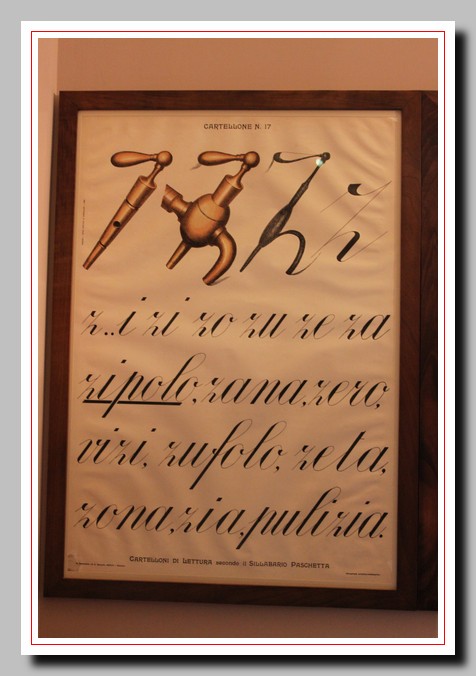 CARTELLONE N. 17
z..i zi zo zu ze za
zipolo, zana, zero,
vizi, zufolo, zeta,
zona, zia, pulizia.
CARTELLONI DI LETTURA secondo il SILLABARIO PASCHETTA